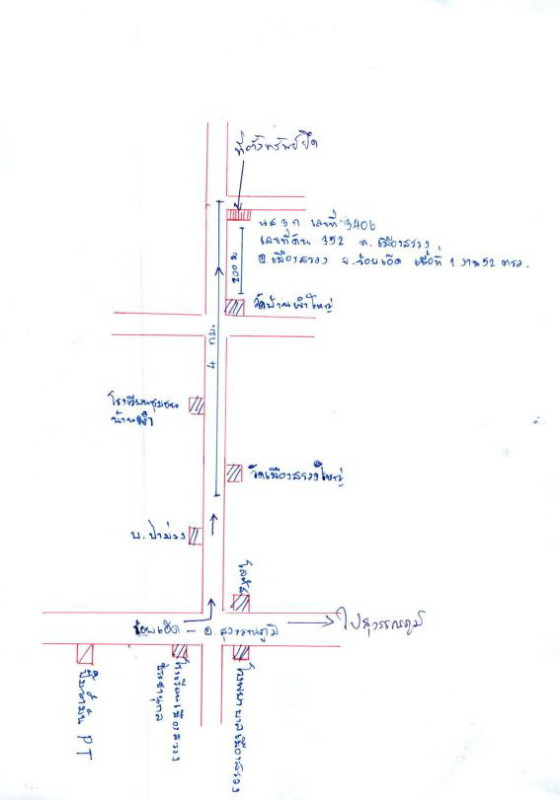 ที่ตั้งทรัพย์ยึด
นส 3 ก เลขที่ 3406
เลขที่ดิน 352 ต.เมืองสรวง
อ.เมืองสรวง จ.ร้อยเอ็ด เนื้อที่ 1 งาน 52 ตรว.
200 ม
วัดบ้านผำใหญ่
4 กม.
โรงเรียนชุมชน
บ้านผำ
วัดเมืองสรวงใหญ่
บ.ป่าม่วง
โลตัส
ร้อยเอ็ด - อ.สุวรรณภูมิ
ไปสุวรรณภูมิ
ปั๊มน้ำมัน PT
โรงเรียนเมืองสรวง
โรงพยาบาลเมืองสรวง